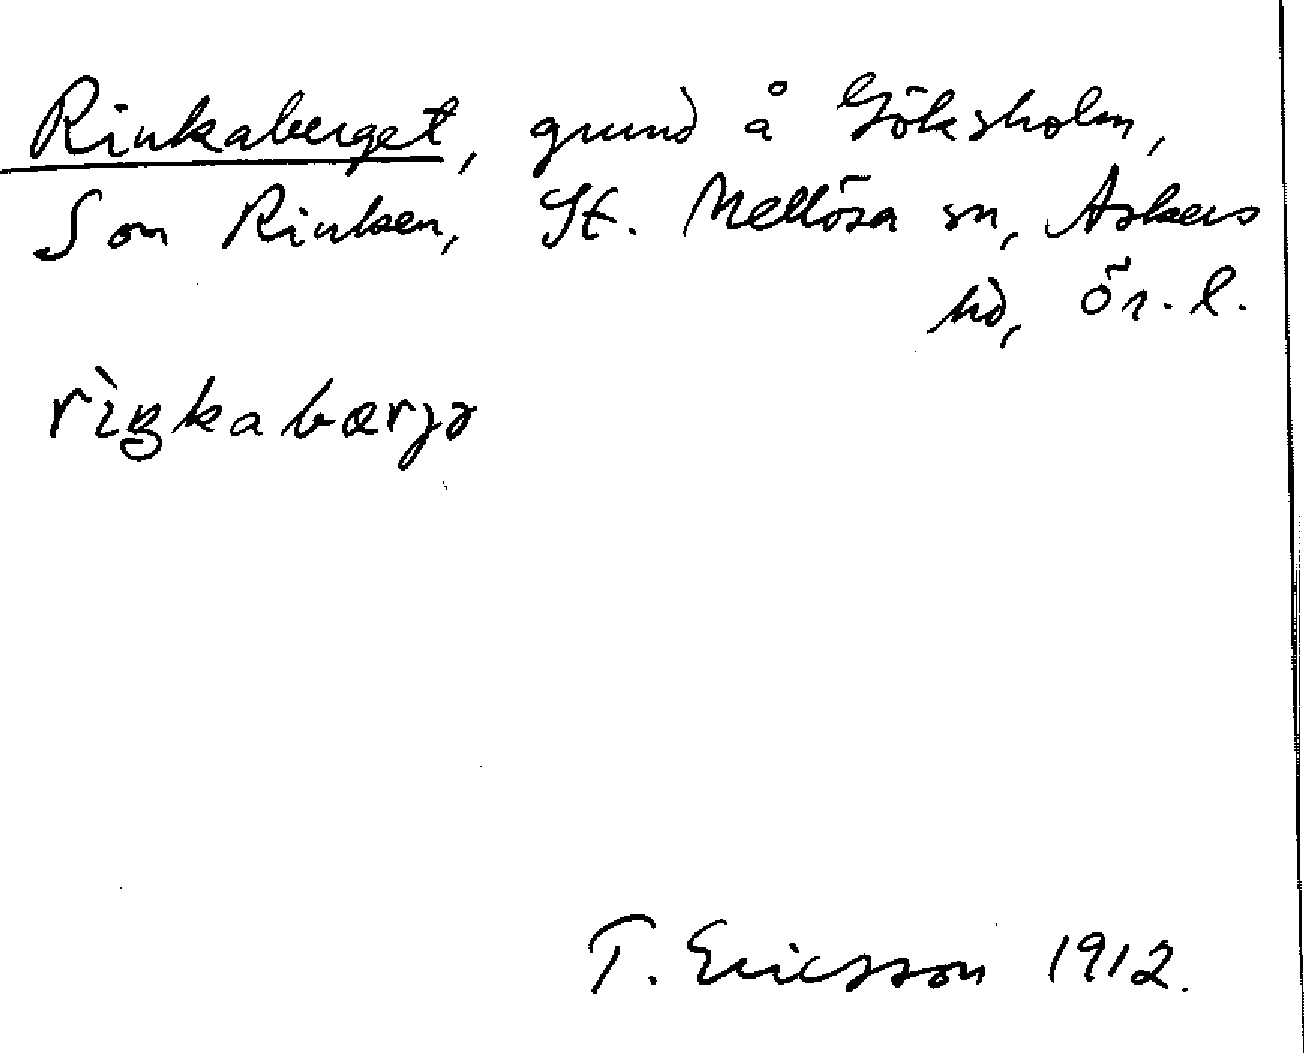 Rinkaberget, grund å Göksholm,
S om Rinken, St. Mellösa sn, Askers
hd, Ör. l.
rìŋkabærjə
T. Ericsson 1912.